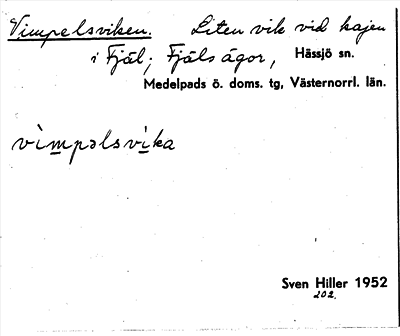 Vimpelsviken. Liten vik vid kajen
i Fjäl; Fjäls ägor, Hässjö sn.
Medelpads ö. doms. tg, Västernorrl. län.
vìmpəlsvìka
Sven Hiller 1952
202.